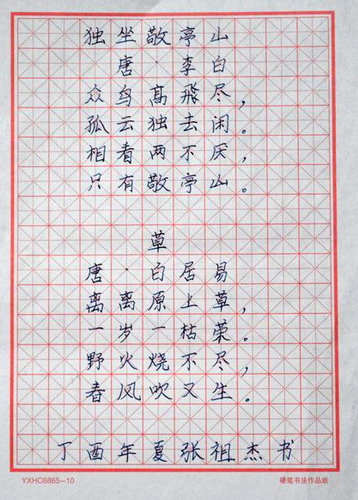 独坐敬亭山
唐·李白
众鸟高飛尽，
孤云独去闲。
相看两不厌，
只有敬亭山。
草
唐·白居易
离离原上草，
一岁一枯荣。
野火烧不尽，
春风吹又生。
丁酉年夏张祖杰书
YXHC6865-10
硬笔书法作品纸